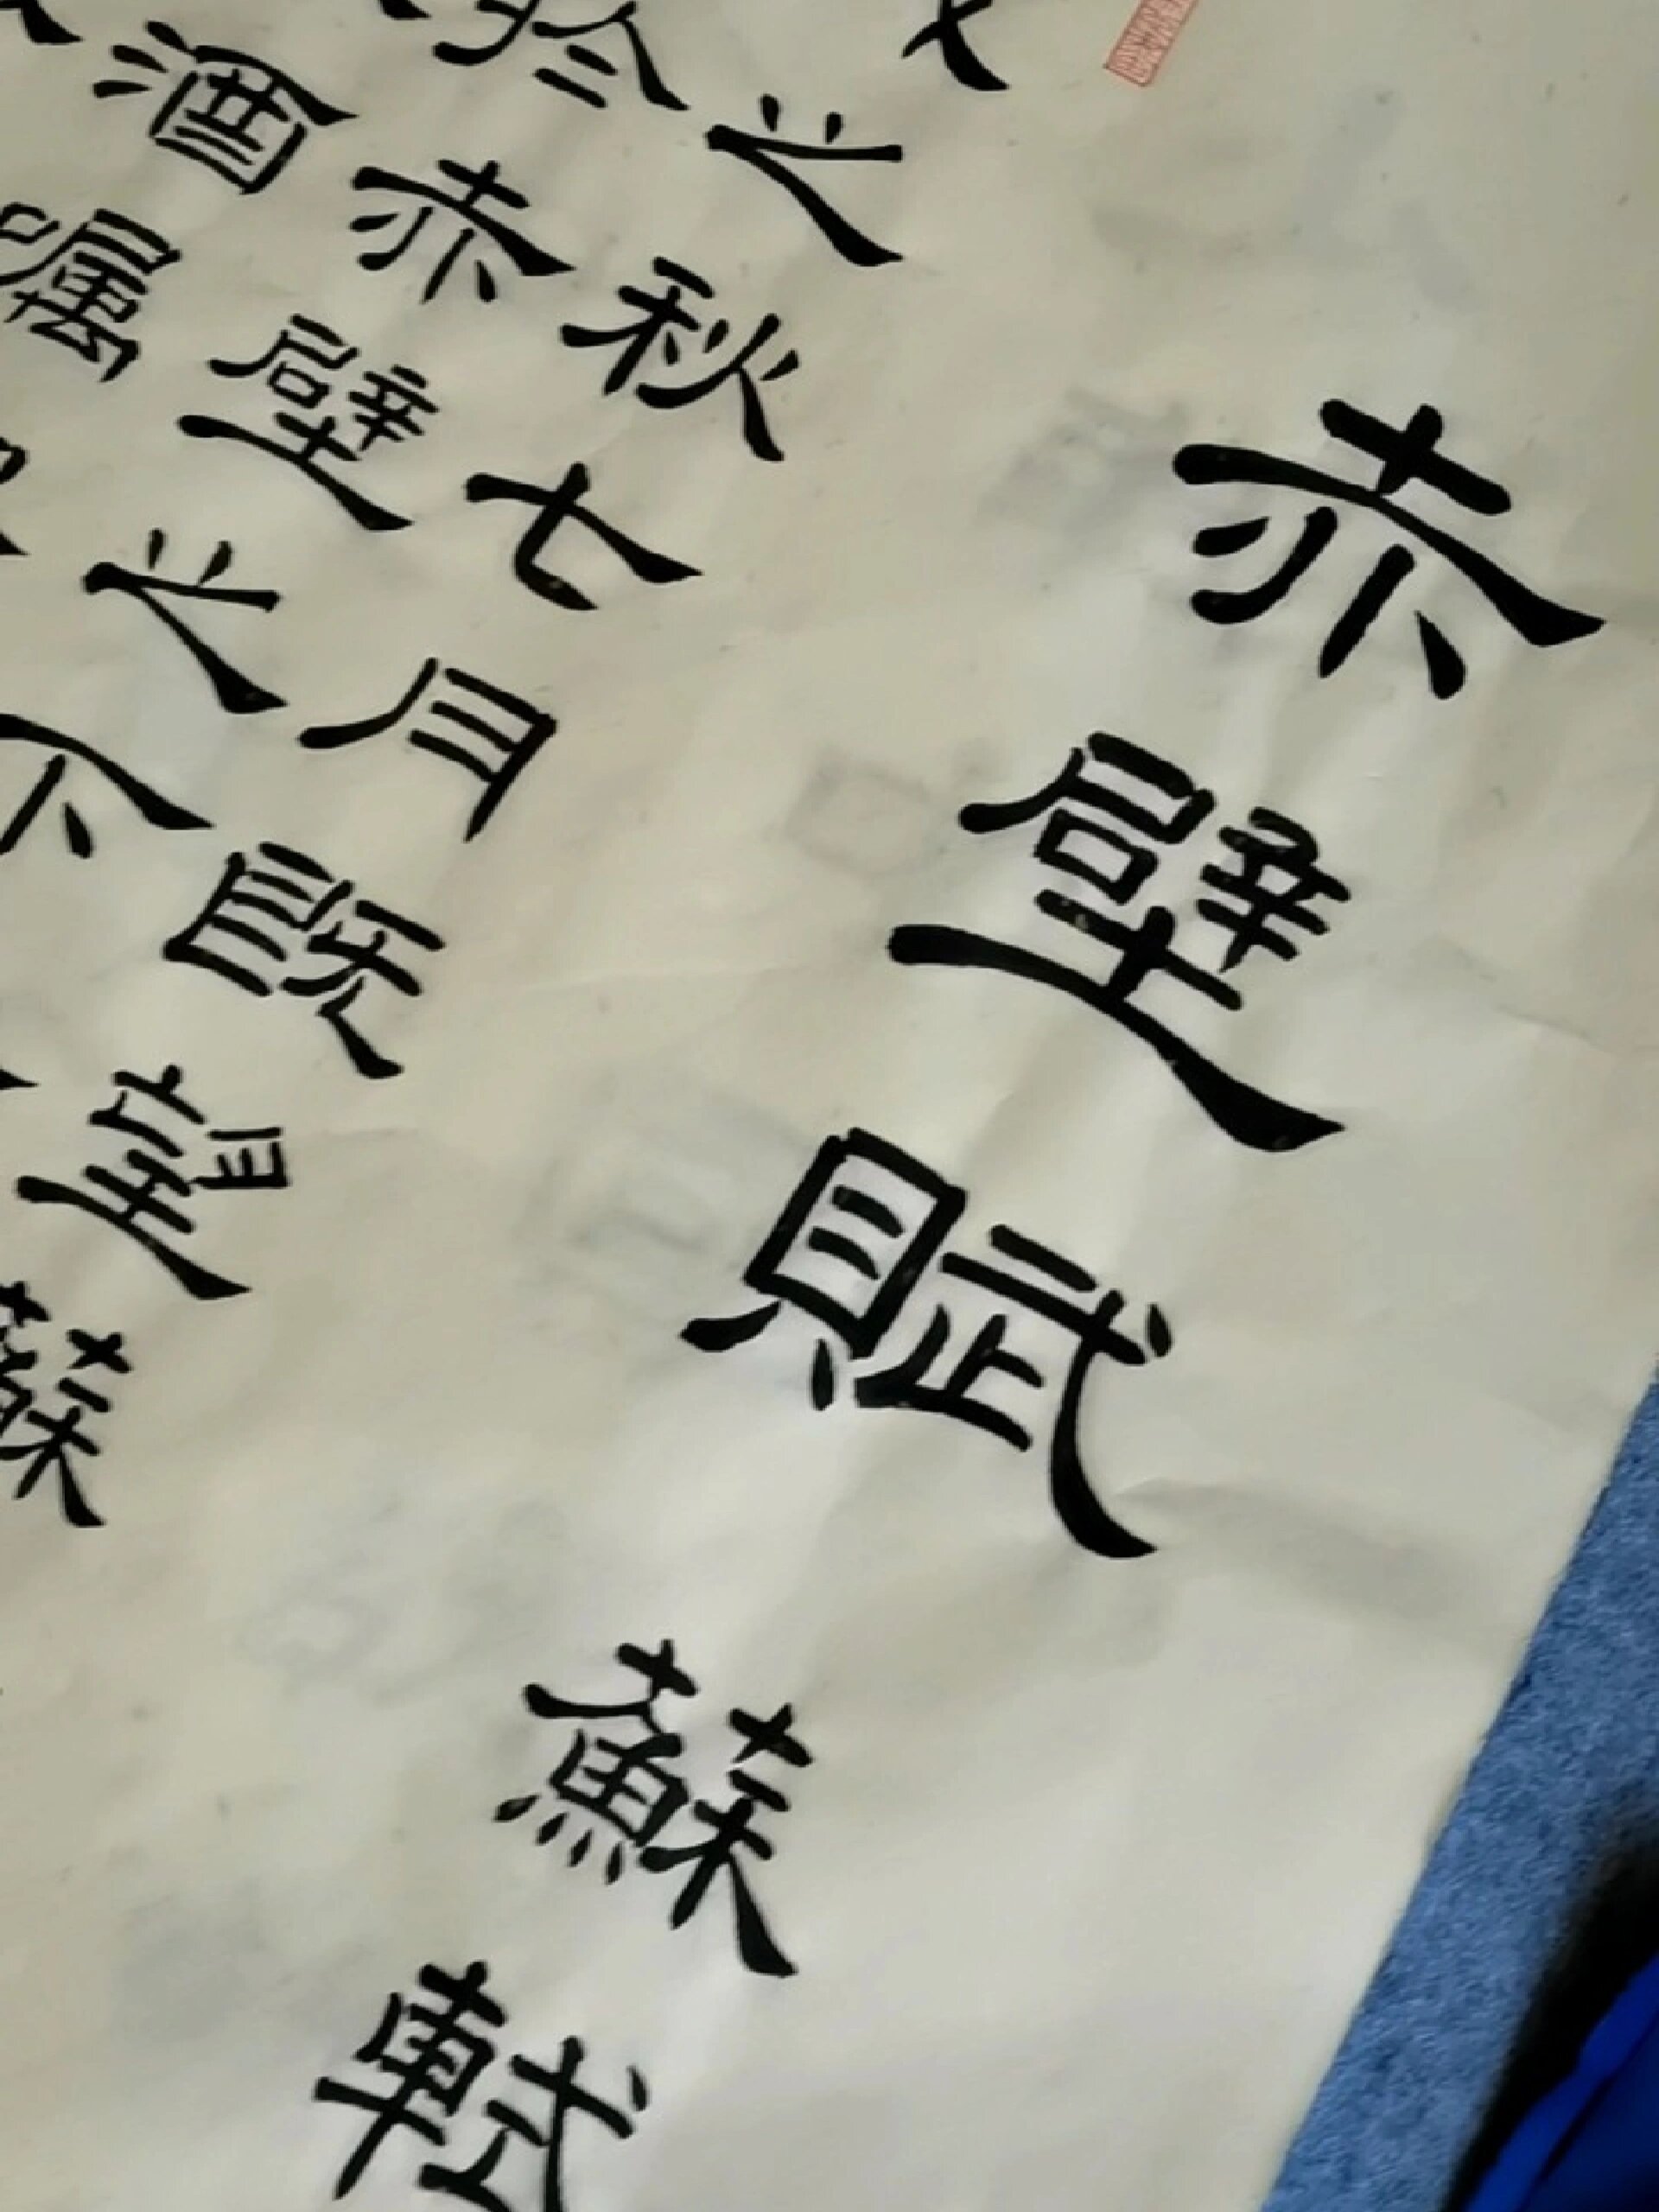 赤壁賦 蘇軾
之秋七月既望蘇
於赤壁之下
酒属